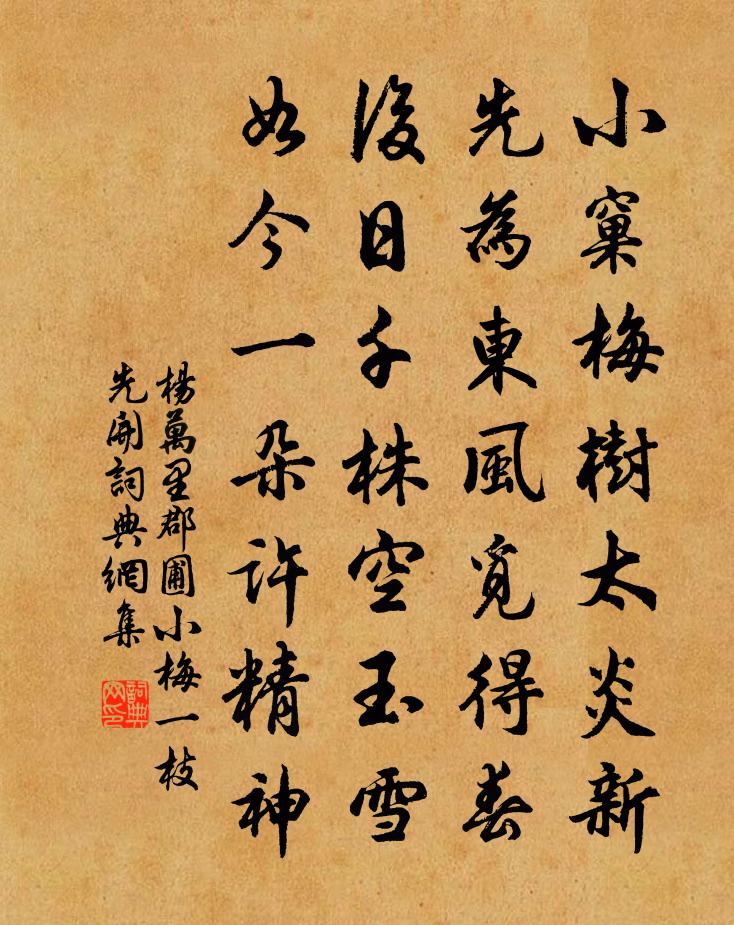 小窠梅樹太炎新
先為東風覓得春
後日千株空玉雪
如今一朵許精神
楊萬里郡圃小梅一枝
先開詞典網集
詞典網印